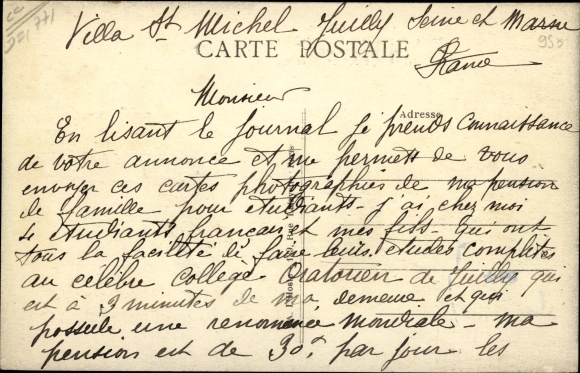 Villa St Michel Juilly Seine et Marne
CARTE POSTALE
France
Monsieur
Adresse
En lisant le Journal je prends connaissance
de votre annonce et me permets de vous
envoyer ces cartes photographies de ma pension
de famille pour étudiants - j'ai chez moi
4 étudiants français et mes fils - qui ont
tous la facilité de faire leurs études complètes
au célèbre collège Oratorien de Juilly qui
est à 3 minutes de ma demeure et qui
possède une renommée Mondiale - ma
pension est de 30f par jour les